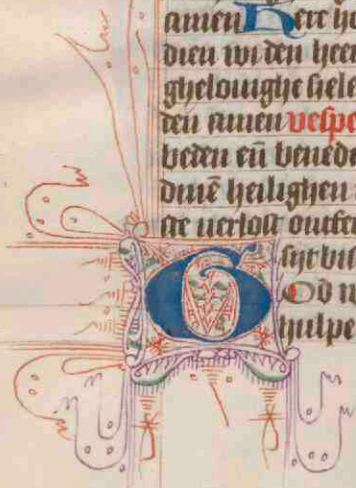 amen Here he
dien wi den heer
ghelouighe siele
den amen vespe
beden en̄ benede
dinē heilighen
ste verlost
G
God u
hulpe